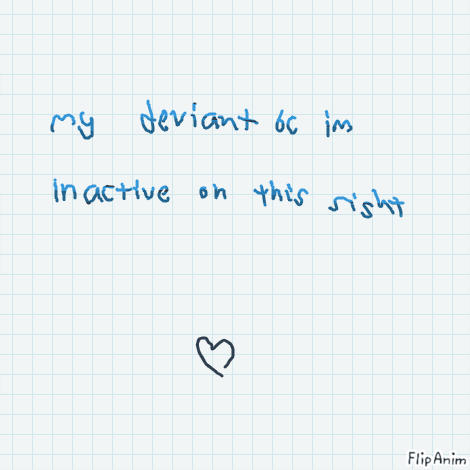 my deviant bc im
inactive on this sight
FlipAnim